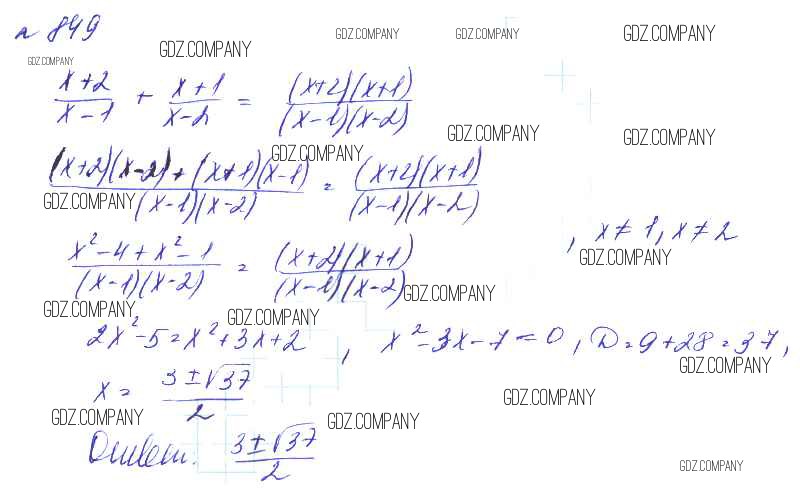 № 849
GDZ.COMPANY GDZ.COMPANY GDZ.COMPANY GDZ.COMPANY
GDZ.COMPANY
(x+2)/(x-1) + (x+1)/(x-2) = ((x+2)(x+1))/((x-1)(x-2))
GDZ.COMPANY GDZ.COMPANY
GDZ.COMPANY
((x+2)(x-2)+(x+1)(x-1))/((x-1)(x-2)) = ((x+2)(x+1))/((x-1)(x-2))
GDZ.COMPANY
, x≠1, x≠2
(x²-4+x²-1)/((x-1)(x-2)) = ((x+2)(x+1))/((x-1)(x-2))
GDZ.COMPANY
GDZ.COMPANY
GDZ.COMPANY GDZ.COMPANY
2x²-5=x²+3x+2, x²-3x-7=0, D=9+28=37,
GDZ.COMPANY
x = (3±√37)/2
GDZ.COMPANY
GDZ.COMPANY GDZ.COMPANY
Ответ: (3±√37)/2
GDZ.COMPANY